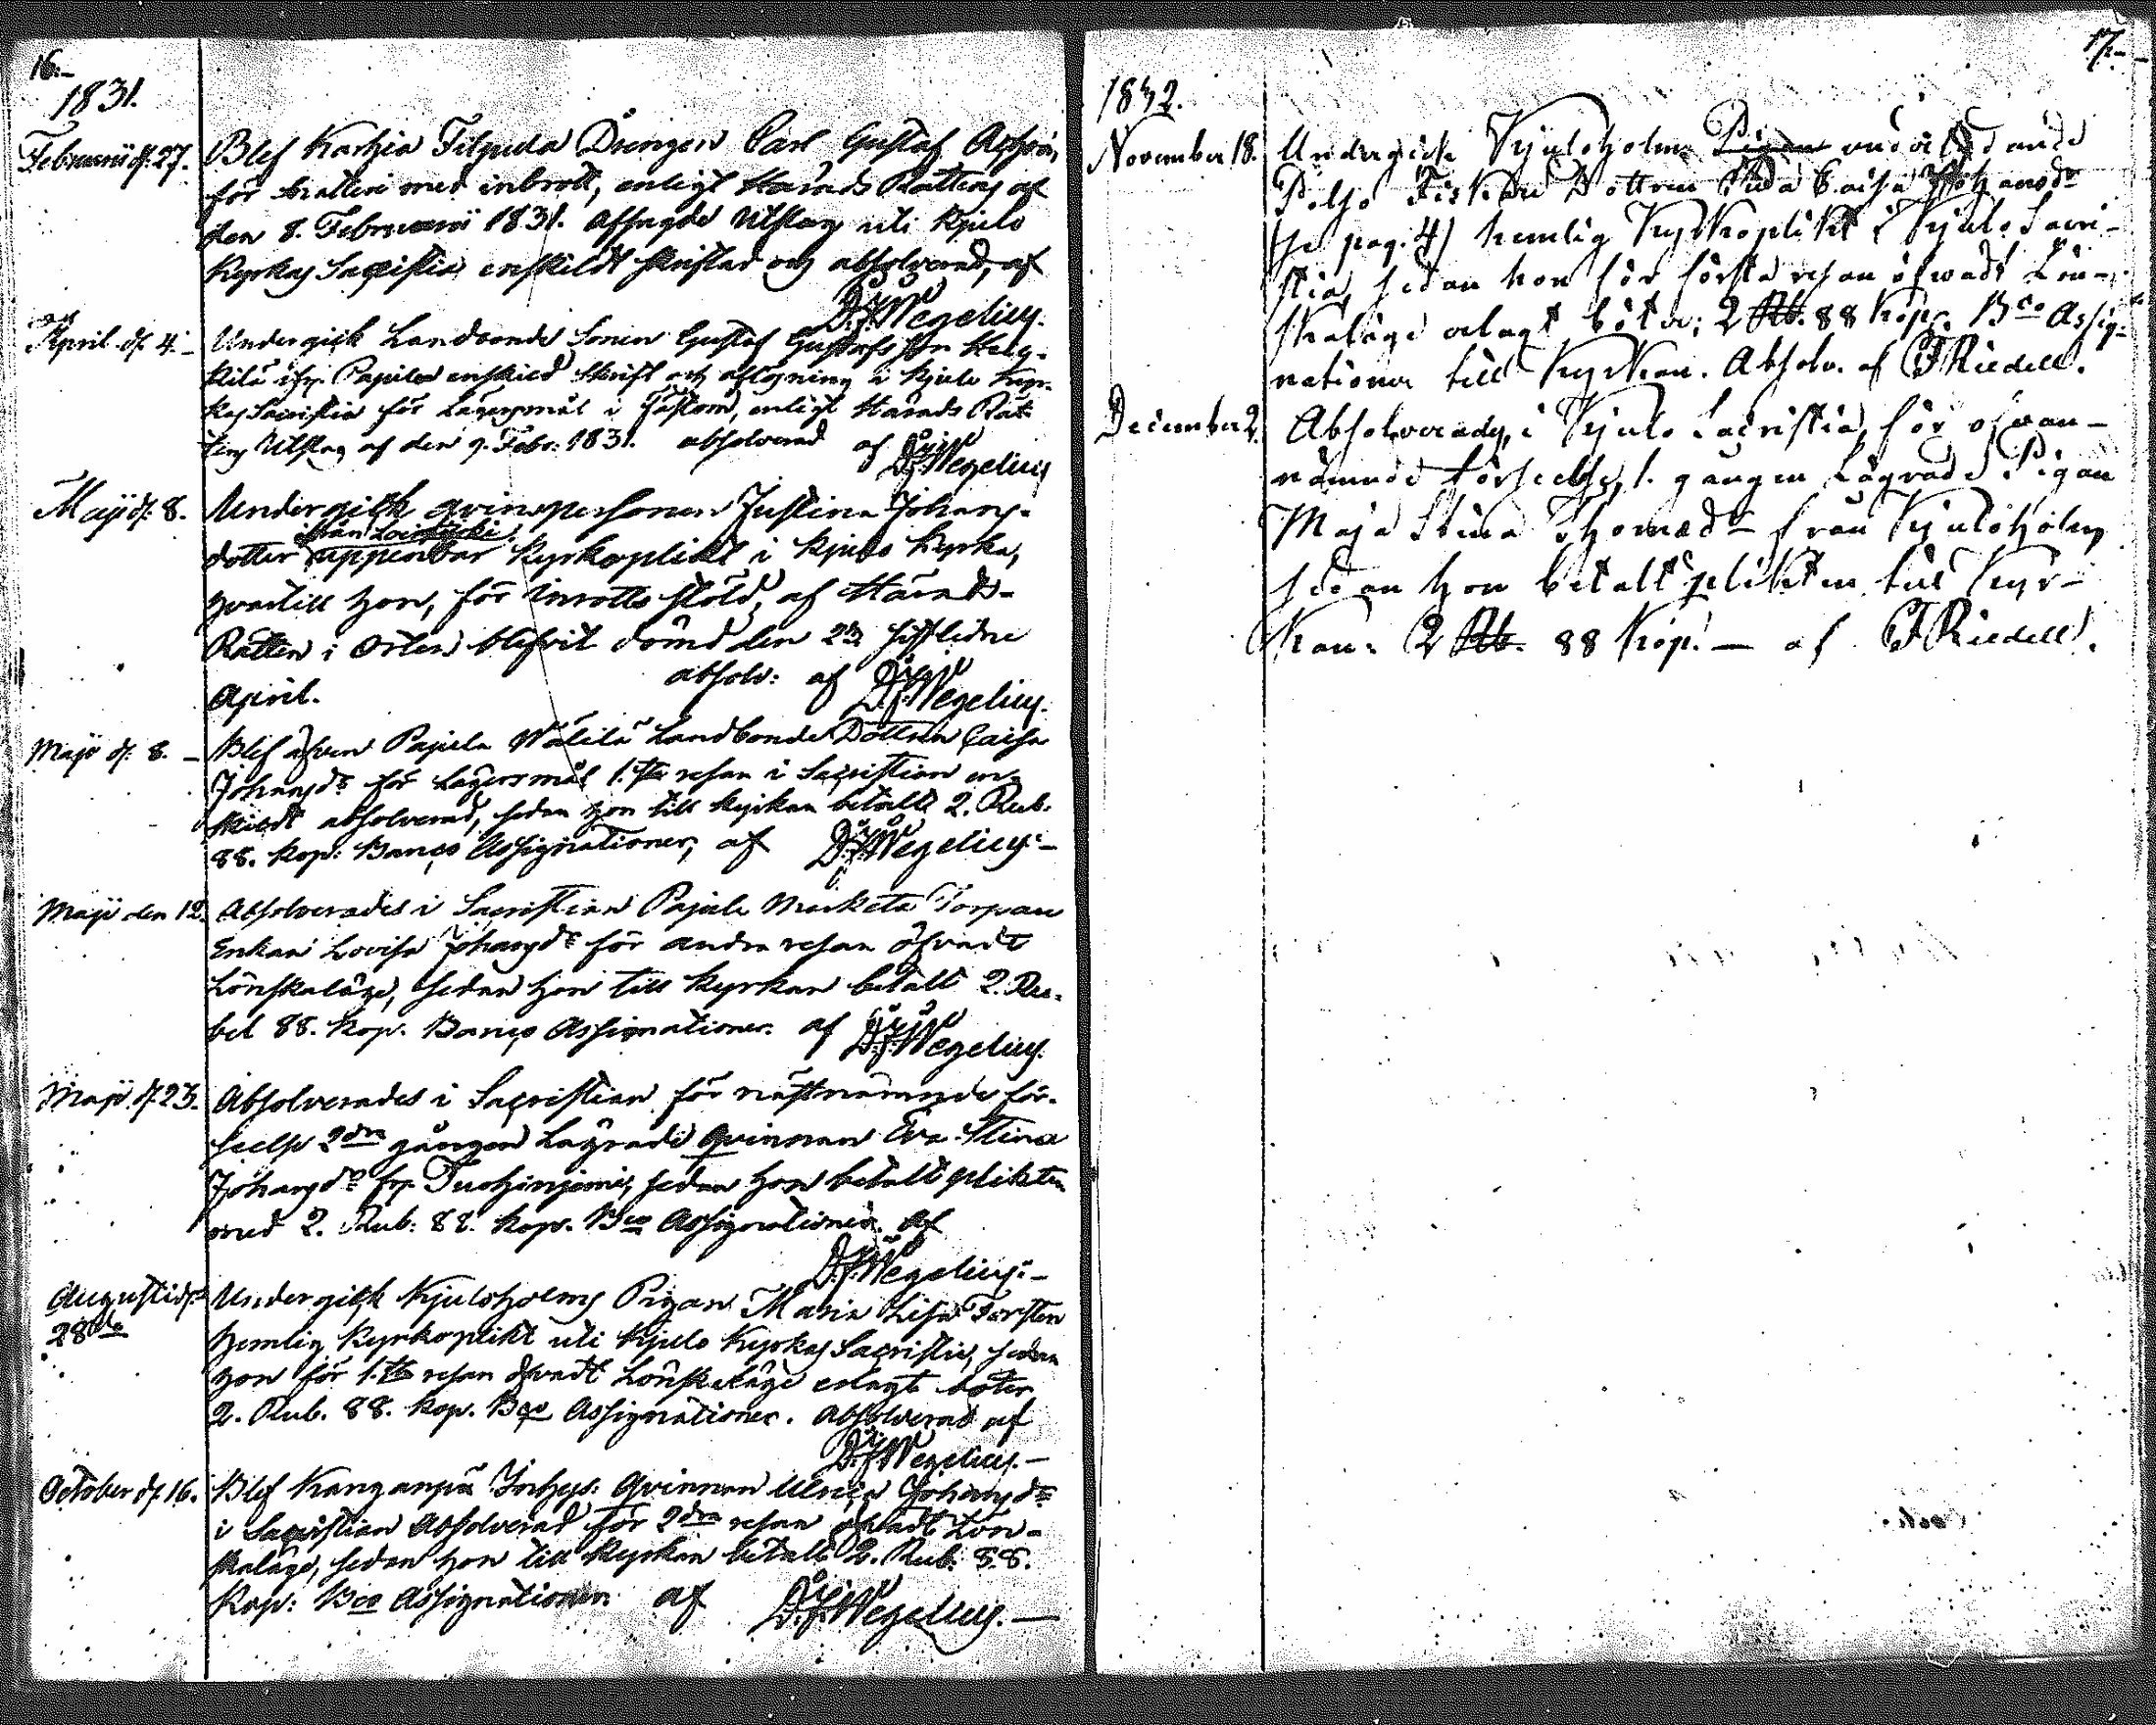 16.-
1831.
Februarii d. 27. Blef Karhia Filpula Drengen Carl Gustaf
för Snatteri med inbrott, enligt Härads Rättens af
den 8. Februarii 1831. afsagde Utslag uti Kjulo
Kyrkas Sacristia enskildt skriftad och absolverad, af
D.J. Wegelius.
April d. 4. Undergick Landbonde Sonen Gustaf Gustafsson
ifr. Papula enskied Skrift och aflösning i Kjulo Kyr-
kas Sacristia för Lägersmål i Fästom, enligt Härads Rät-
tens Utslag af den 9. Febr. 1831. absolverad af D.J. Wegelius
Maji d. 8. Undergick qvinspersonen Justina Johans-
från
dotter uppenbar Kyrkoplikt i Kjulo Kyrka,
hvartill hon, för Inrotts stöld, af Härads-
Rätten i Orten blifvit dömd den 23 sistledne
April. absolv: af D.J. Wegelius.
Maji d. 8. - Blef äfven Pajula Wälilä Landbonde Dottren Caisa
Johansdr för Lägersmål 1.sta resan i Sacristian en-
skildt absolverad, sedan hon till kyrkan betalt 2. Rub:
88. kop: Banco Assignationer, af D.J. Wegelius.-
Maji den 12. Absolverades i Sacristian Pajula Marketa Torpan
Enkan Lovisa Johansdr för andra resan öfvadt
Lönskaläge, sedan hon till Kyrkan betalt 2. Ru-
bel 88. kop. Banco Assignationer. af D.J. Wegelius.
Maji d. 23. Absolverades i Sacristian för nästnämnde för-
seelse 2dra gången Lägrade qvinnan Eva Stina
Johansdr fr. Tuohiniemi, sedan hon betalt plikten
med 2. Rub: 88. kop. Bco Assignationer. af
D.J. Wegelius.-
Augusti d. 28de Undergick Kjuloholms Pigan Maria Lisa Torsten
hemlig Kyrkoplikt uti Kjulo Kyrkas Sacristia, sedan
hon för 1.sta resan öfvadt Lönskaläge erlagt böter
2. Rub. 88. kop. Bco Assignationer. absolverad af
D.J. Wegelius.-
October d. 16. Blef Kanganpää Inhys: qvinnan Ulrica Johansdr
i Sacristian absolverad för 2dra resan öfvadt Lön-
skaläge, sedan hon till Kyrkan betalt 2. Rub. 88.
Kop: Bco Assignationer. af D.J. Wegelius.-
17.-
1832.
November 18. Undergick Kjuloholms Pigan
Fiskare Dottren Caisa Johansdr
(se pag. 4) hemlig Kyrkoplikt i Kjulo Sacri-
stia, sedan hon för första resan öfvadt Lön-
skaläge erlagt böter; 2 Rb. 88 kop. Bco Assig-
nationer till Kyrkan. Absolv. af F Riedell.
December 2. Absolverades, i Kjulo Sacristia, för ofvan-
nämnde förseelse, 1. gången Lägrade Pigan
Maja Stina Thomædr från Kjuloholm,
sedan hon betalt plikten till Kyr-
kan: 2 Rb. 88 kop. - af F Riedell.